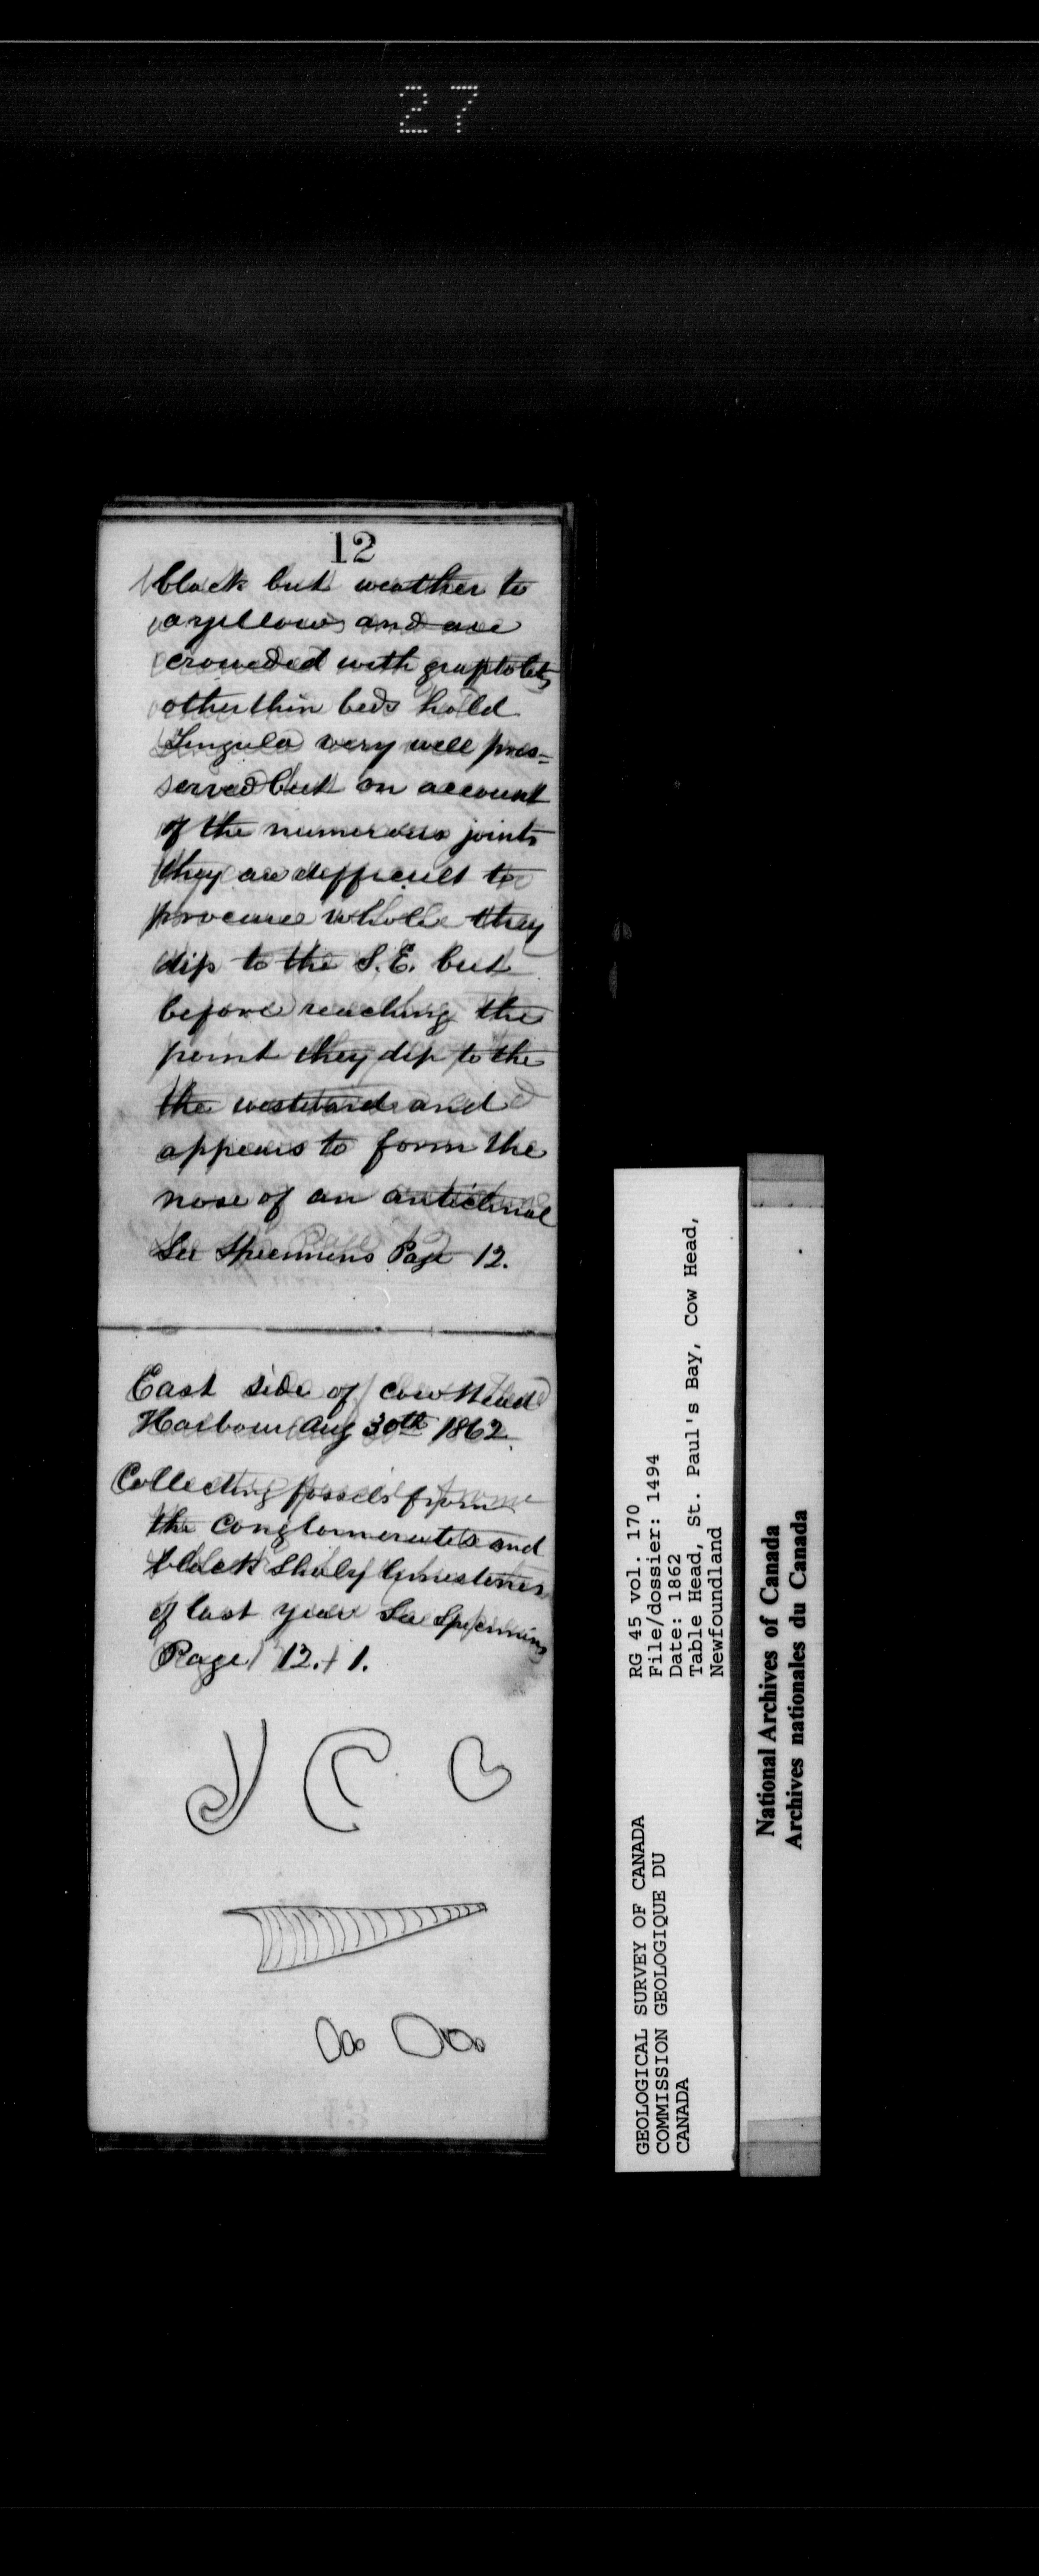 27
12
black but weather to
a yellow and are
crowded with graptolets
other thin beds hold
Lingula very well pres=
served but on account
of the numerous joints
they are difficult to
procure whole they
dip to the S.E. but
before reaching the
point they dip to the
the westward and
appears to form the
nose of an anticlinal
See Specimens Page 12.
East side of Cow Head
Harbour Aug 30th 1862
Collecting fossils from
the conglomerates and
black Shaly limestones
of last year See Specimens
Page 12. + 1.
GEOLOGICAL SURVEY OF CANADA
COMMISSION GEOLOGIQUE DU
CANADA
RG 45 vol. 170
File/dossier: 1494
Date: 1862
Table Head, St. Paul's Bay, Cow Head,
Newfoundland
National Archives of Canada
Archives nationales du Canada